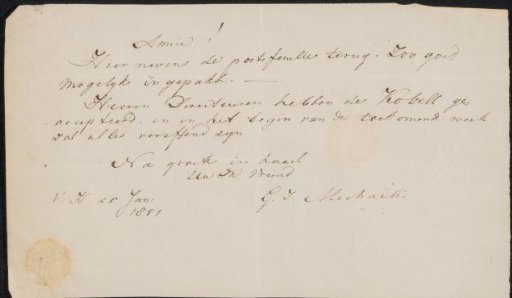 Amice!
Hier nevens de portefeuilles terug. Zoo goed
mogelijk in gepakt. —
Heeren Directeuren hebben de Kobell ge
accepteerd. en in het begin van de toekomende week
zal alles vereffend zyn
Na groete in haast
Vriend
28 Jan:
G. J. Michaëlis